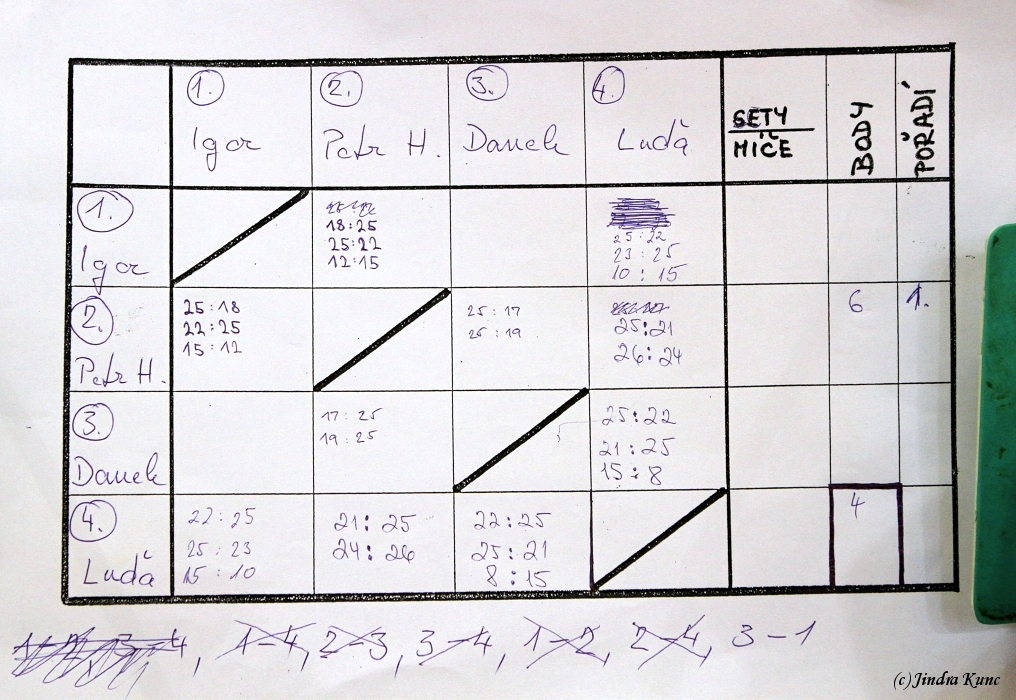 1.
2.
3.
4.
Igor
Petr H.
Daneh
Luďa
SETY
MÍČE
BODY
POŘADÍ
1.
Igor
18:25
25:22
12:15
25:22
23:25
10:15
2.
Petr H.
25:18
22:25
15:12
25:17
25:19
25:21
26:24
6
1.
3.
Daneh
17:25
19:25
25:22
21:25
15:8
4.
Luďa
22:25
25:23
15:10
21:25
24:26
22:25
25:21
8:15
4
1-4, 2-3, 3-4, 1-2, 2-4, 3-1
(c) Jindra Kunc